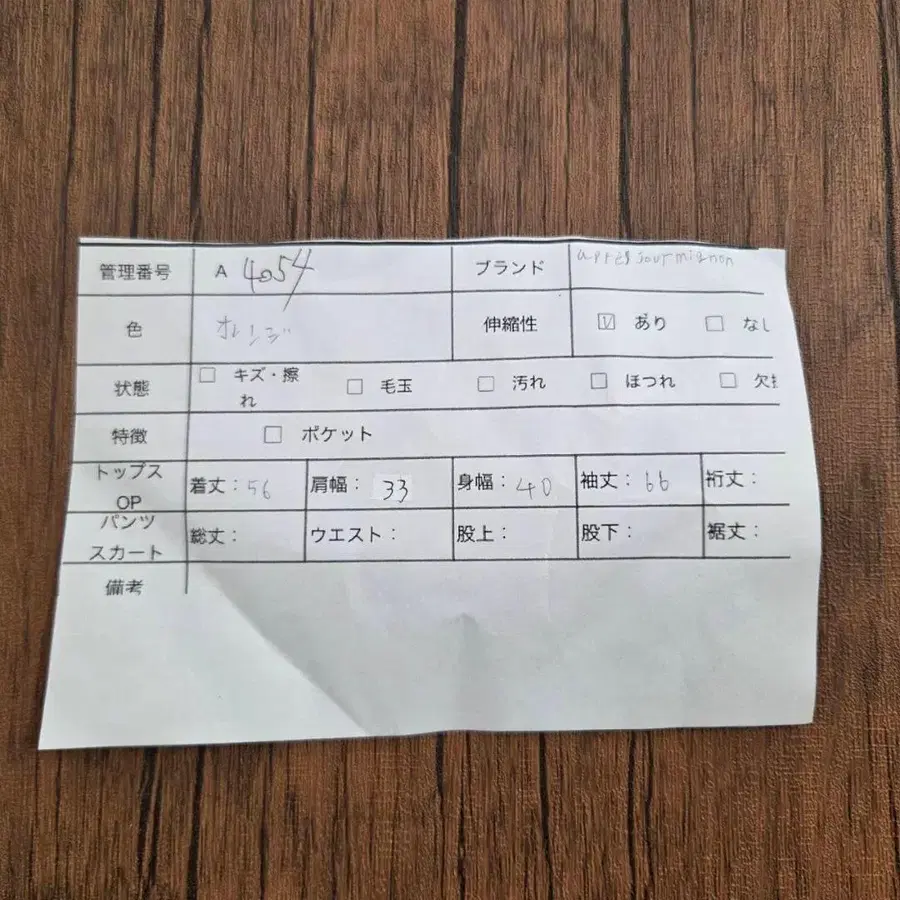 管理番号 A 4054 ブランド apres jour mignon
色 オレンジ 伸縮性 ☑ あり ☐ なし
状態 ☐ キズ・擦れ ☐ 毛玉 ☐ 汚れ ☐ ほつれ ☐ 欠
特徴 ☐ ポケット
トップス OP 着丈：56 肩幅：33 身幅：40 袖丈：66 裄丈：
パンツ スカート 総丈： ウエスト： 股上： 股下： 裾丈：
備考